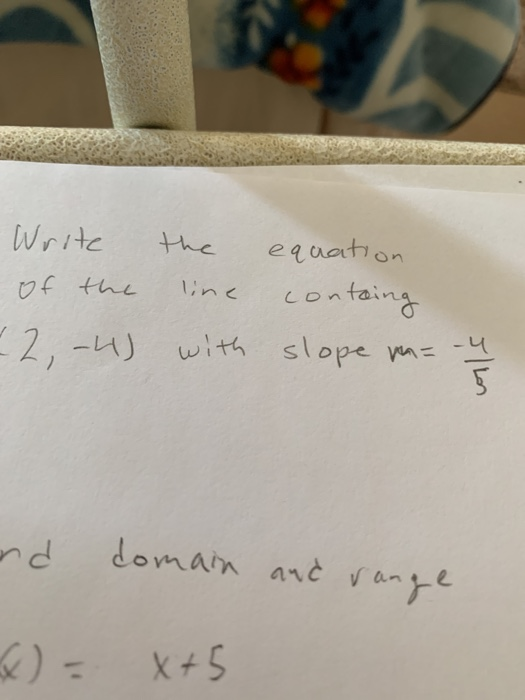 Write the equation
of the line containg
(2, -4) with slope m= -4/5
nd domain and range
(x) = x+5